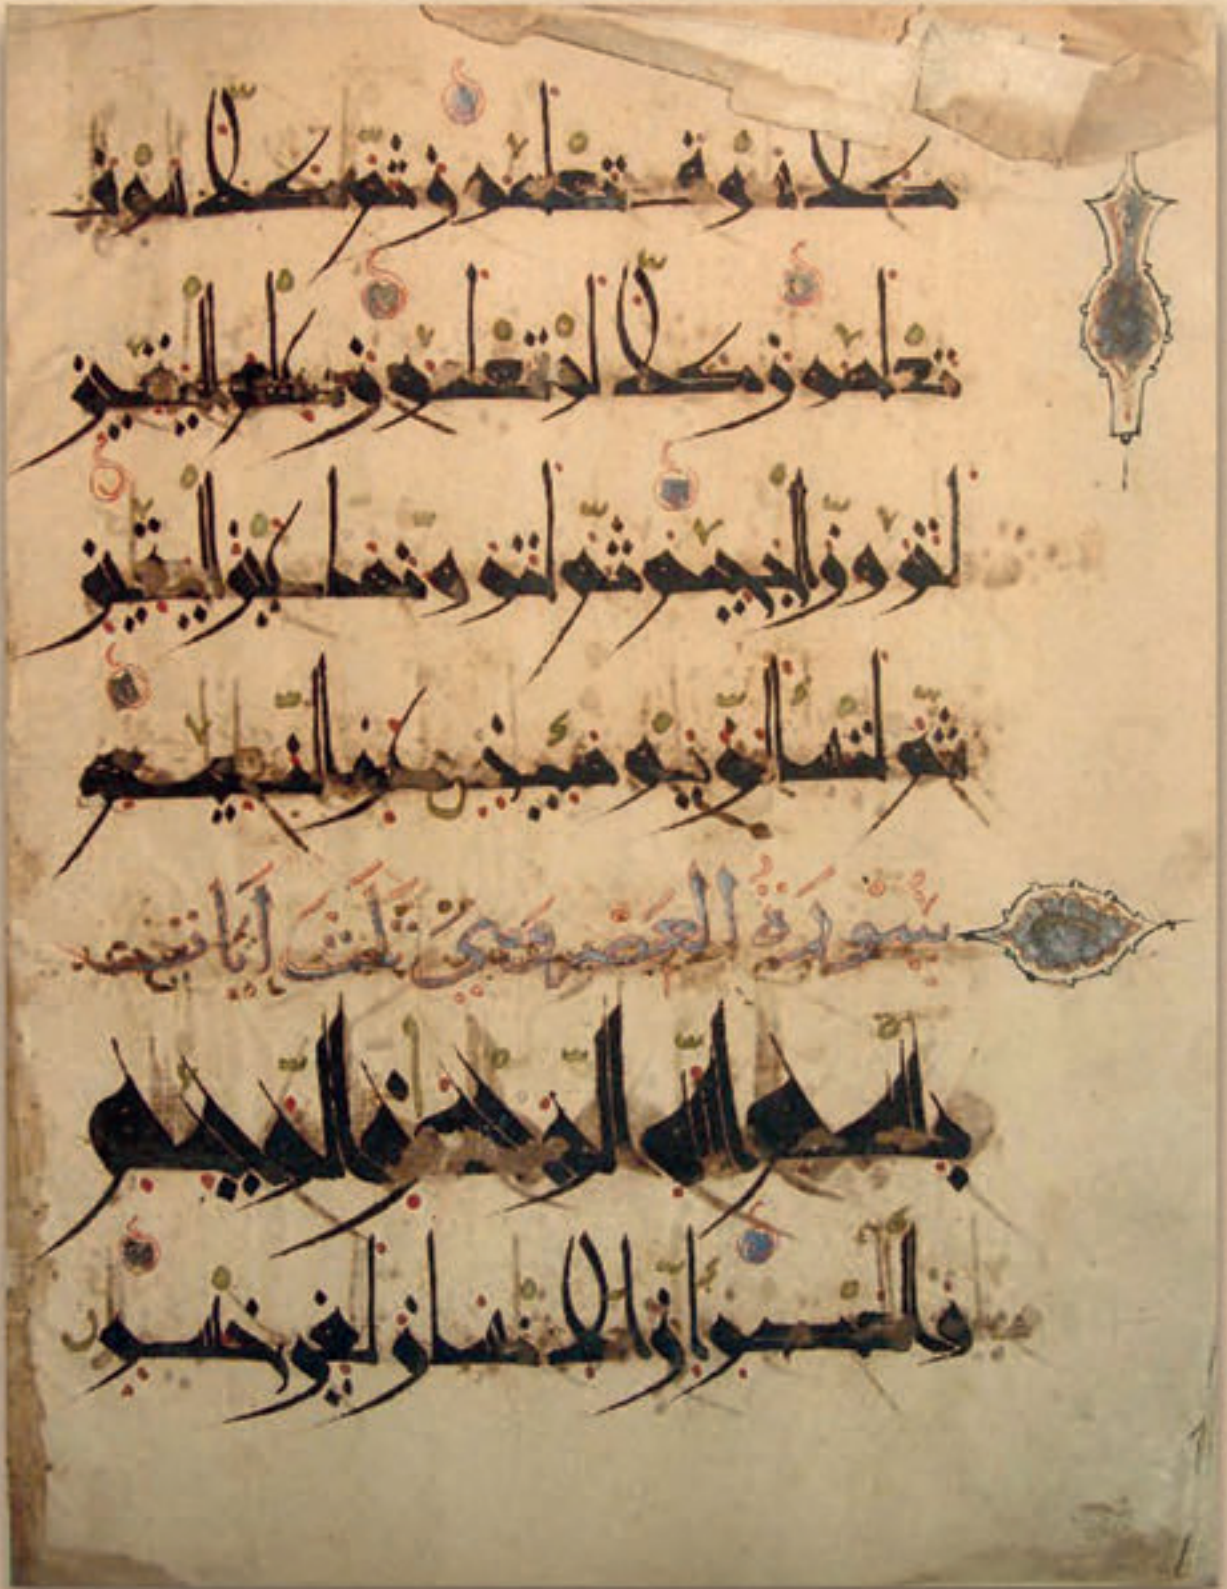 كلا سوف تعلمون ثم كلا سوف
تعلمون كلا لو تعلمون علم اليقين
لترون الجحيم ثم لترونها عين اليقين
ثم لتسألن يومئذ عن النعيم
سورة العصر وهي ثلث ايات
بسم الله الرحمن الرحيم
والعصر ان الانسان لفي خسر